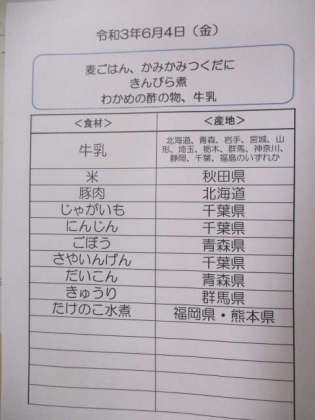 令和3年6月4日（金）
麦ごはん、かみかみつくだに
きんぴら煮
わかめの酢の物、牛乳
＜食材＞ ＜産地＞
牛乳 北海道、青森、岩手、宮城、山
形、埼玉、栃木、群馬、神奈川、
静岡、千葉、福島のいずれか
米 秋田県
豚肉 北海道
じゃがいも 千葉県
にんじん 千葉県
ごぼう 青森県
さやいんげん 千葉県
だいこん 青森県
きゅうり 群馬県
たけのこ水煮 福岡県・熊本県